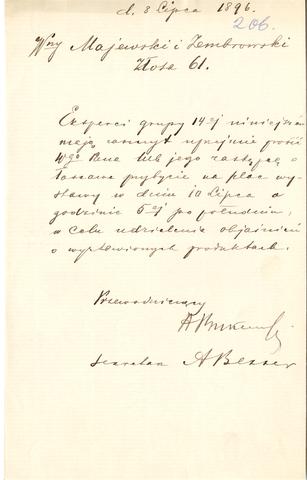 d. 8 Lipca 1896.
206.
Wny Majewski i Zembrowski
Złota 61.
Eksperci grupy 14-ej niniejszem
mają zaszczyt uprzejmie prosić
Wgo Pana lub jego zastępcę o
łaskawe przybycie na plac wy-
stawy w dniu 10 Lipca o
godzinie 5ej po południu,
w celu udzielenia objaśnień
o wystawionych produktach.
Przewodniczący
Sekretarz A Besser